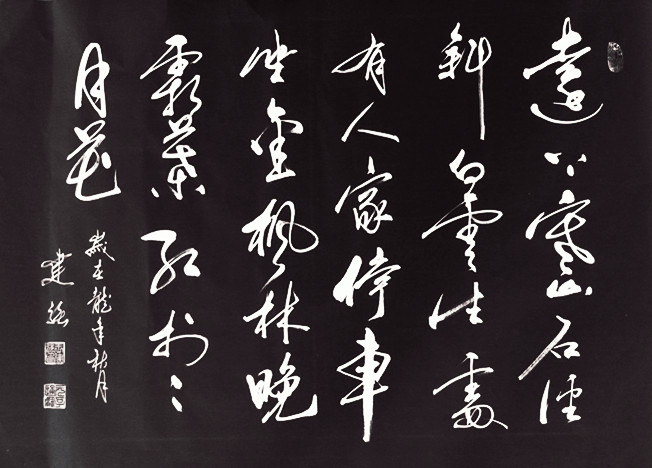 遠上寒山石徑
斜白雲生處
有人家停車
坐愛楓林晚
霜葉紅於二
月花
歲在龍年秋月
建